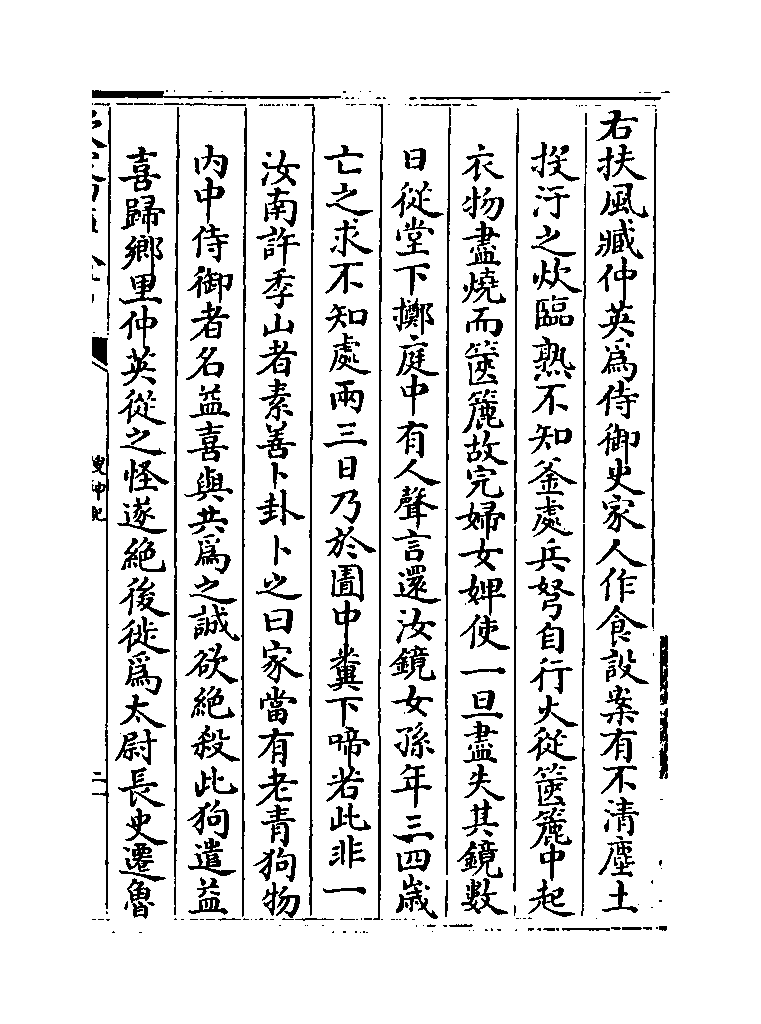 右扶風臧仲英爲侍御史家人作食設案有不清塵土
投汙之炊臨熟不知釜處兵弩自行火從篋簏中起
衣物盡燒而篋簏故完婦女婢使一旦盡失其鏡數
日從堂下擲庭中有人聲言還汝鏡女孫年三四歳
亡之求不知處兩三日乃於圊中糞下啼若此非一
汝南許季山者素善卜卦卜之曰家當有老青狗物
内中侍御者名益喜與共爲之誠欲絶殺此狗遣益
喜歸鄉里仲英從之怪遂絶後徙爲太尉長史遷魯
搜神記
二